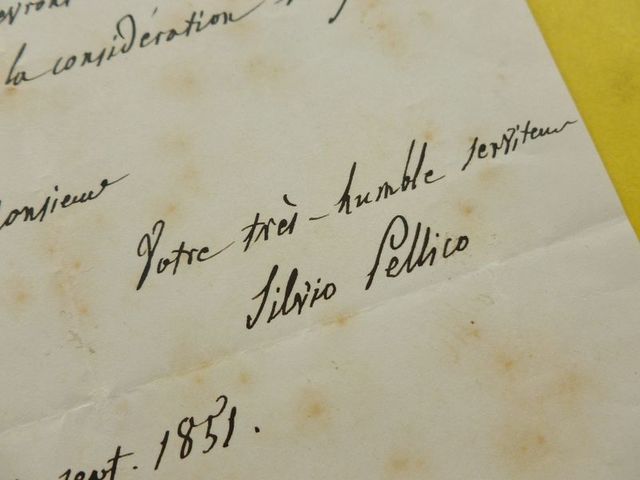 la considération
Monsieur
Votre très-humble serviteur
Silvio Pellico
sept. 1851.